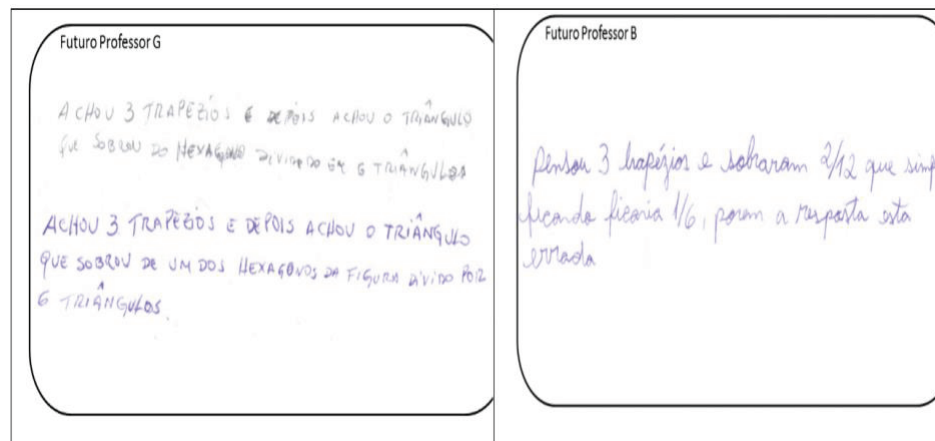 Futuro Professor G
ACHOU 3 TRAPÉZIOS E DEPOIS ACHOU O TRIÂNGULO
QUE SOBROU DO HEXAGONO DIVIDIDO EM 6 TRIÂNGULOS
ACHOU 3 TRAPÉZIOS E DEPOIS ACHOU O TRIÂNGULO
QUE SOBROU DE UM DOS HEXAGONOS DA FIGURA DIVIDO POR
6 TRIÂNGULOS.
Futuro Professor B
Pensou 3 trapézios e sobraram 2/12 que simp
ficando ficaria 1/6, porem a resposta esta
errada